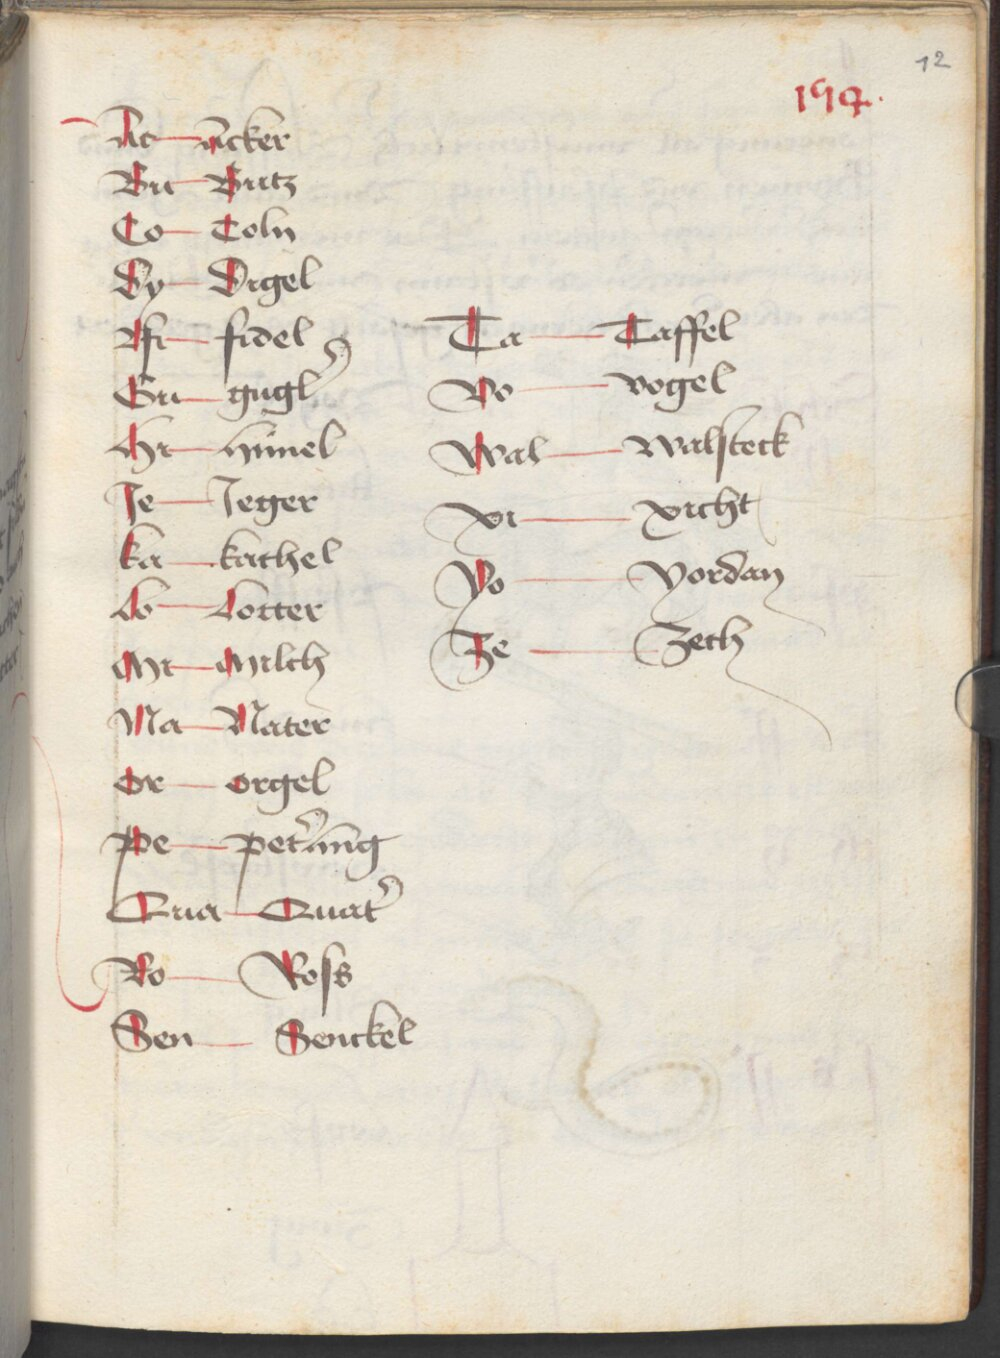 12
194.
Ac — Acker
Bu — Butz
Co — Coln
Dy — Digel
Fi — fidel
Gu — gugl
Hi — Himel
Je — Jeger
ka — kathel
Lo — Lotter
Mi — Milch
Na — Nater
Or — orgel
Pe — pet'ling
Qua — Quat'
Ro — Ross
Sen — Senckel
Ta — Taffel
Vo — vogel
Wal — Walsteck
Xi — xicht
Yo — Yordan
Ze — Zech